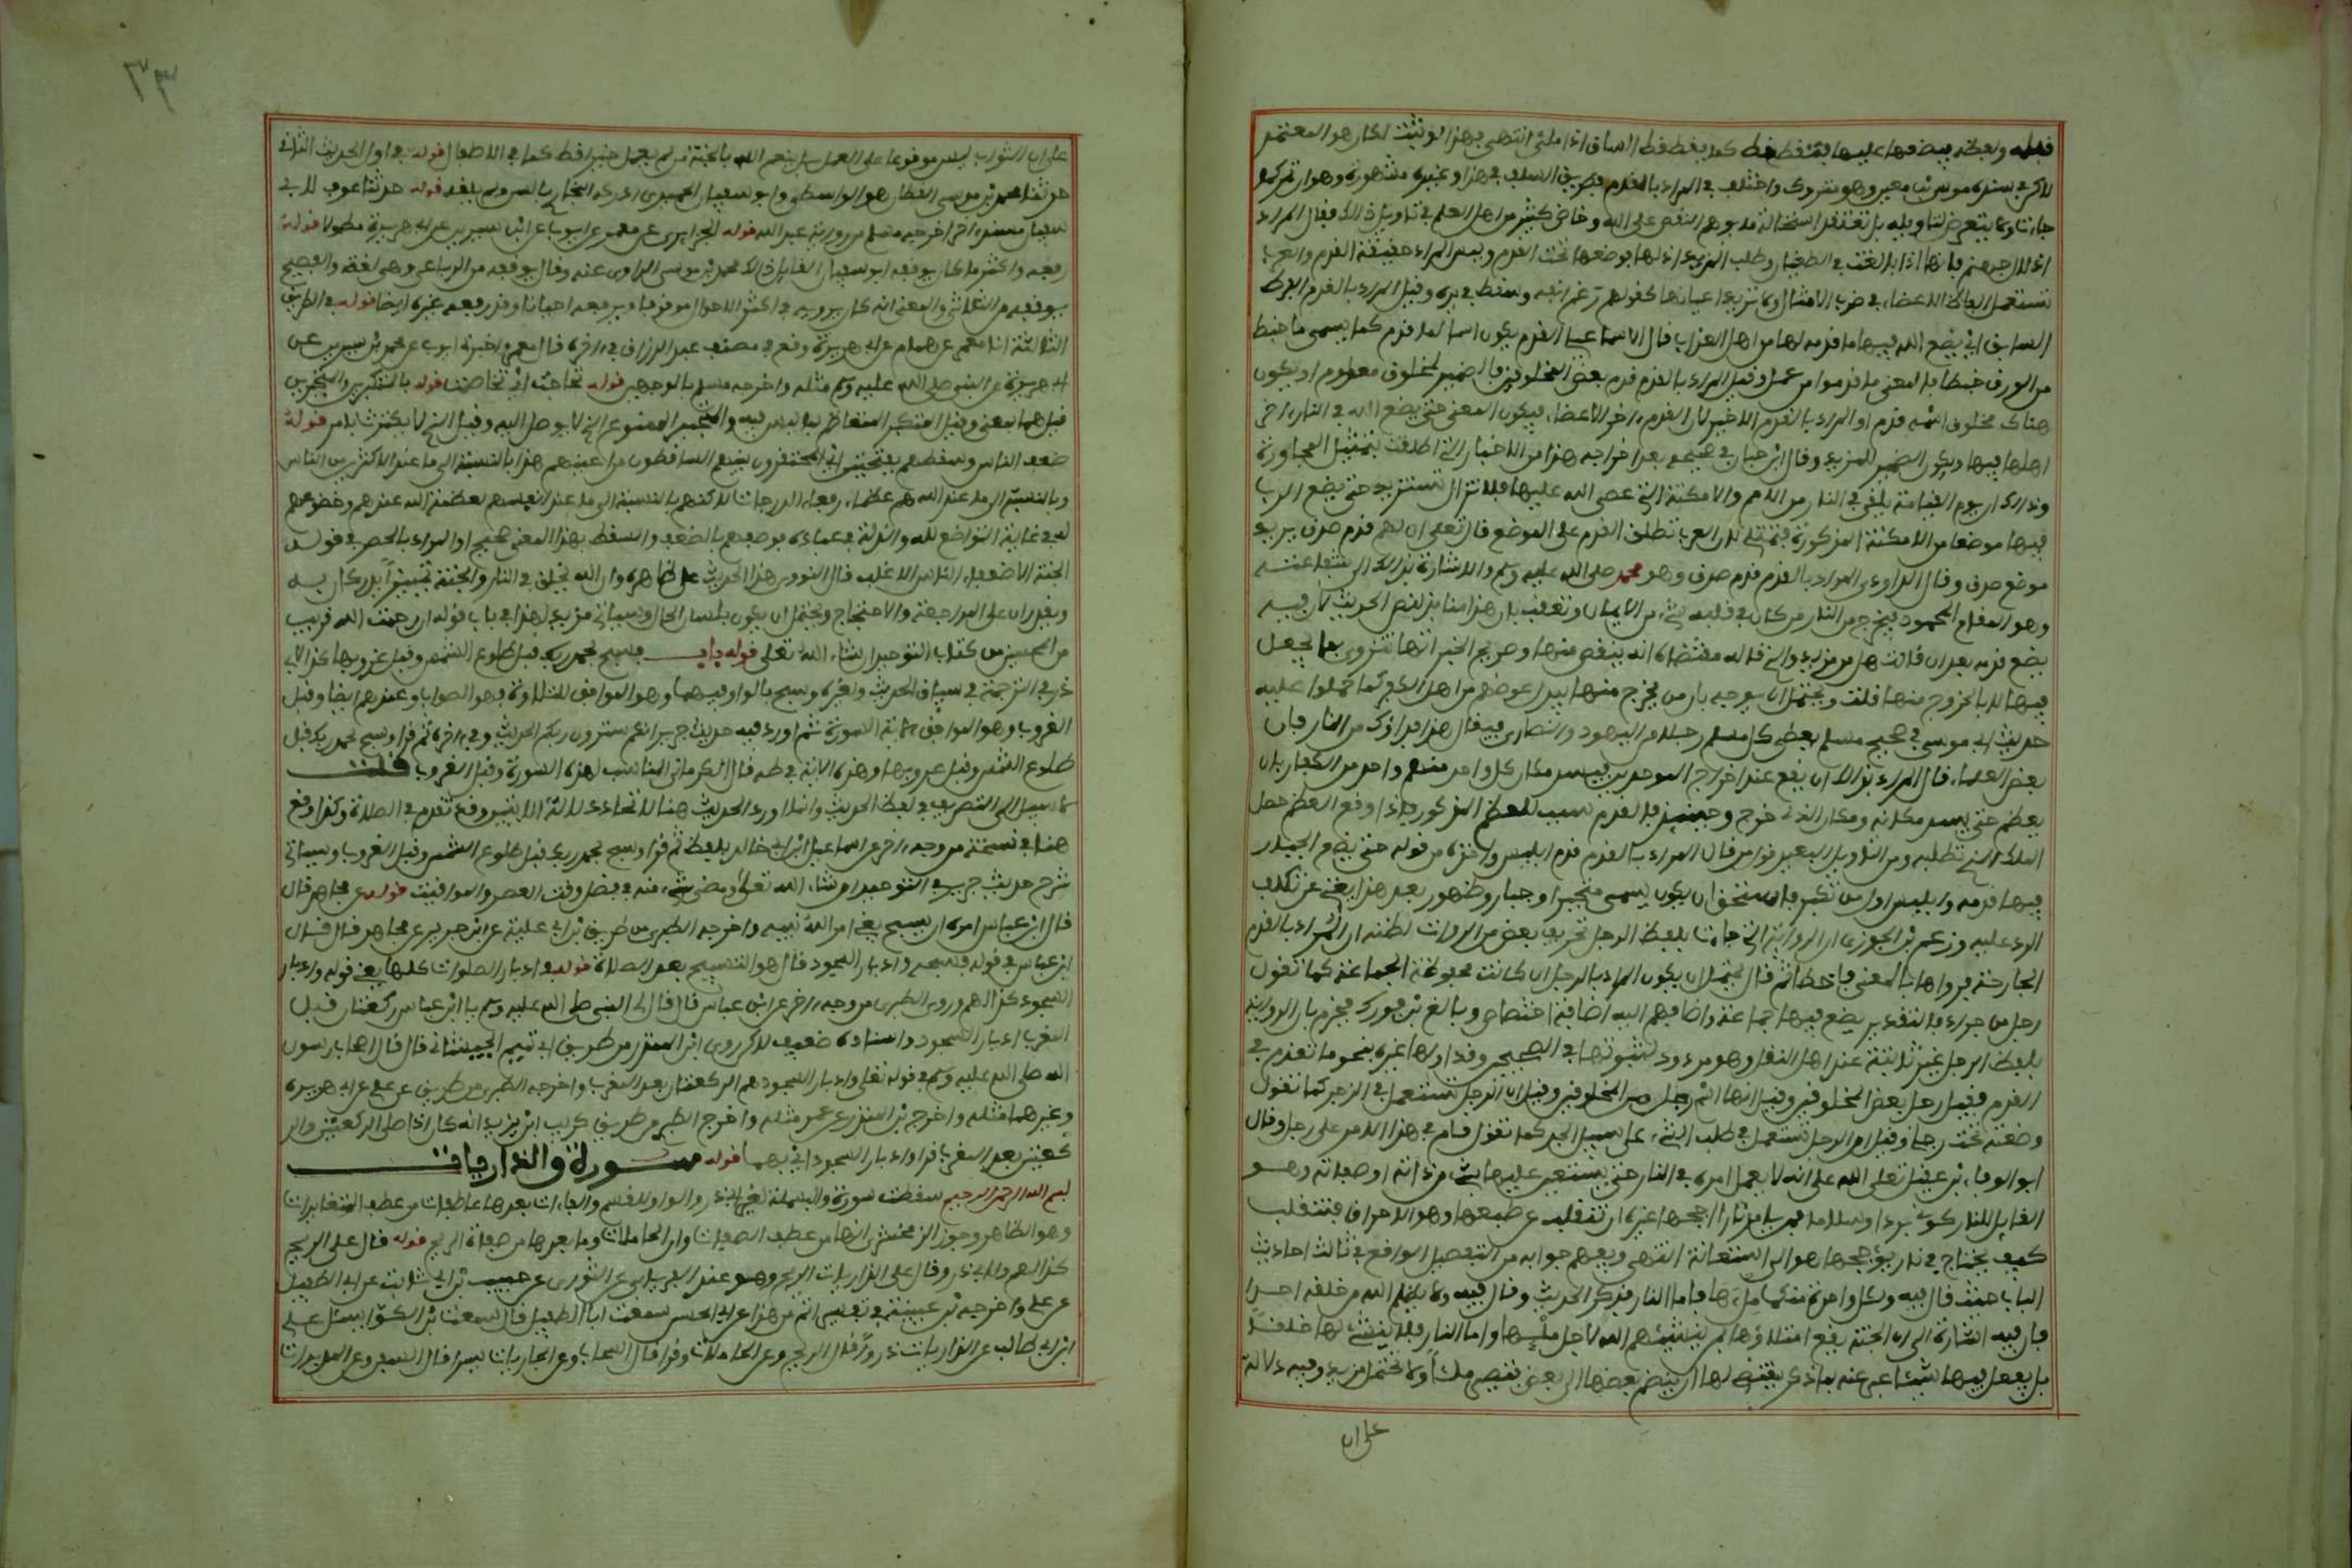 فدله ولفظه فيضعها عليها فتقطقط كما يقطقط السقاء اذا ملئ انتهى فهذا لو ثبت لكان هو المعتمد
لكن في سنده موسى بن مطير وهو متروك واختلف في المراد بالقدم فطريق السلف في هذا وغيره مشهورة وهو ان تمر كما
جاءت ولا يتعرض لتاويله بل نعتقد استحالة ما يوهم النقص على الله وخاض كثير من اهل العلم في تاويل ذلك فقال المراد
اذلال جهنم فانها اذا بالغت في الطغيان وطلب المزيد اذلها فوضعها تحت القدم وليس المراد حقيقة القدم والعرب
تستعمل الفاظ الاعضاء في ضرب الامثال ولا تريد اعيانها كقولهم رغم انفه وسقط في يده وقيل المراد بالقدم الفرط
السابق اي يضع الله فيها ما قدمه لها من اهل العذاب قال الاسماعيلي القدم يكون اسما لما قدم كما يسمى ما خبط
من الورق خبطا فالمعنى ما قدموا من عمل وقيل المراد بالقدم قدم بعض المخلوقين فالضمير لمخلوق معلوم او يكون
هناك مخلوق اسمه قدم او المراد بالقدم الاخير لان القدم ءاخر الاعضاء فيكون المعنى حتى يضع الله في النار ءاخر
اهلها فيها ويكون الضمير للمزيد وقال ابن حبان في صحيحه بعد اخراجه هذا من الاخبار التي اطلقت بتمثيل المجاورة
وذلك ان يوم القيامة يلقى في النار من الامم والامكنة التي عصى الله عليها فلا تزال تستزيد حتى يضع الرب
فيها موضعا من الامكنة المذكورة فتمتلئ لان العرب تطلق القدم على الموضع قال تعلى ان لهم قدم صدق يريد
موضع صدق وقال الداودي المراد بالقدم قدم صدق وهو محمد صلى الله عليه وسلم والاشارة بذلك الى شفاعته
وهو المقام المحمود فيخرج من النار من كان في قلبه شيء من الايمان وتعقب بان هذا منابذ لنص الحديث لان فيه
يضع قدمه بعد ان قالت هل من مزيد والذي قاله مقتضاه انه ينقص منها وصريح الخبر انها تنزوي بما يجعل
فيها لا بالخروج منها قلت ويحتمل ان يوجه بان من يخرج منها يبدل عوضهم من اهل الكفر كما حملوا عليه
حديث ابي موسى في صحيح مسلم يعطى كل مسلم رجلا من اليهود والنصارى فيقال هذا فداؤك من النار فان
بعض العلماء قال المراد بذلك انه يقع عند اخراج الموحدين فيسد مكان كل واحد منهم واحد من الكفار بان
يعظم حتى يسد مكانه ومكان الذي خرج وحينئذ فالقدم سبب للعظم المذكور فاذا وقع العظم حصل
الملء الذي تطلبه ومن التاويل البعيد قول من قال المراد بالقدم قدم ابليس واخذه من قوله حتى يضع الجبار
فيها قدمه وابليس اول من تكبر فاستحق ان يكون يسمى متجبرا وجبارا وظهور بعد هذا يغني عن تكلف
الرد عليه وزعم بن الجوزي ان الرواية التي جاءت بلفظ الرجل تحريف بعض من الرواة لظنه ان المراد بالقدم
الجارحة فرواها بالمعنى فاخطا ثم قال يحتمل ان يكون المراد بالرجل ان كانت محفوظة الجماعة كما تقول
رجل من جراد فالتقدير يضع فيها جماعة واضافهم اليه اضافة اختصاص وبالغ بن فورك فجزم بان الرواية
بلفظ الرجل غير ثابتة عند اهل النقل وهو مردود لثبوتها في الصحيحين وقد اولها غيره بنحو ما تقدم في
القدم فقيل رجل بعض المخلوقين وقيل انها اسم رجل من المخلوقين وقيل ان الرجل تستعمل في الزجر كما تقول
وضعته تحت رجلي وقيل ان الرجل تستعمل في طلب الشيء على سبيل الجد كما تقول قام في هذا الامر على رجل وقال
ابو الوفاء بن عقيل تعلى الله على انه لا يعمل امره في النار حتى يستعين عليها بشيء من ذاته او صفاته وهو
القائل للنار كوني بردا وسلاما فمن يامر نارا اججها غيره ان تنقلب عن طبعها وهو الاحراق فتنقلب
كيف يحتاج في نار يؤججها هو الى استعانة انتهى ويفهم جوابه من التفصيل الواقع في ثالث احاديث
الباب حيث قال فيه ولكل واحدة منكما ملؤها فاما النار فذكر الحديث وقال فيه ولا يظلم الله من خلقه احدا
فان فيه اشارة الى ان الجنة يقع امتلاؤها بمن ينشئهم الله لاجل ملئها واما النار فلا ينشئ لها خلقا
بل يفعل فيها شيئا عبر عنه بما ذكر يقتضي لها ان ينضم بعضها الى بعض فتصير ملأ ولا تحتمل مزيدا وفيه دلالة
على ان
٣٣
على ان الثواب ليس موقوفا على العمل بل ينعم الله بالجنة من لم يعمل خيرا قط كما في الاطفال قوله في اول الحديث الثاني
حدثنا محمد بن موسى القطان هو الواسطي وابو سفيان الحميري ادركه البخاري بالسن ولم يلقه قوله حدثنا عوف لابي
سفيان سند ءاخر اخرجه مسلم من رواية عبد الله قوله الجزايري عن معمر عن ايوب عن ابن سيرين عن ابي هريرة مطولا قوله
رفعه واكثر ما كان يوقفه ابو سفيان القائل ذلك محمد بن موسى الراوي عنه وقال يوقفه من الرباعي وهي لغة والفصيح
يوقفه من الثلاثي والمعنى انه كان يرويه في اكثر الاحوال موقوفا ويرفعه احيانا وقد رفعه غيره ايضا قوله في الطريق
الثالثة انا معمر عن همام عن ابي هريرة وقع في مصنف عبد الرزاق في ءاخره قال معمر واخبرني ايوب عن محمد بن سيرين عن
ابي هريرة عن النبي صلى الله عليه وسلم مثله واخرجه مسلم بالوجهين قوله تحاجت اي تخاصمت قوله بالمتكبرين والمتجبرين
قيل هما بمعنى وقيل المتكبر المتعاظم بما ليس فيه والمتجبر الممنوع الذي لا يوصل اليه وقيل الذي لا يكترث بامر قوله
ضعفاء الناس وسقطهم بفتحتين اي المحتقرون بينهم الساقطون من اعينهم هذا بالنسبة الى ما عند الاكثر من الناس
وبالنسبة الى ما عند الله هم عظماء رفعاء الدرجات لاكنهم بالنسبة الى ما عند انفسهم لعظمة الله عندهم وخضوعهم
له في غاية التواضع لله والذلة في عباده فوصفهم بالضعف والسقط بهذا المعنى صحيح او المراد بالحصر في قول
الجنة الا ضعفاء الناس الاغلب قال النووي هذا الحديث على ظاهره وان الله يخلق في النار والجنة تمييزا يدركان به
ويقدران على المراجعة والاحتجاج ويحتمل ان يكون بلسان الحال وسياتي مزيد لهذا في باب قوله ان رحمت الله قريب
من المحسنين من كتاب التوحيد ان شاء الله تعلى قوله باب فسبح بحمد ربك قبل طلوع الشمس وقبل غروبها كذا لابي
ذر في الترجمة في سياق الحديث ولغيره وسبح بالواو فيهما وهو الموافق للتلاوة فهو الصواب وعندهم ايضا وقبل
الغروب وهو الموافق لاية السورة ثم اورد فيه حديث جرير انكم سترون ربكم الحديث وفي ءاخره ثم قرا وسبح بحمد ربك قبل
طلوع الشمس وقبل غروبها وهذه الاية في طه قال الكرماني المناسب لهذه السورة وقبل الغروب قلت
لا سبيل الى التصرف في لفظ الحديث وانما اورد الحديث هنا لاتحاد دلالة الايتين وقد تقدم في الصلاة وكذا وقع
هنا في نسخة من وجه ءاخر عن اسماعيل ابن ابي خالد بلفظ ثم قرا وسبح بحمد ربك قبل طلوع الشمس وقبل الغروب وسياتي
شرح حديث جرير في التوحيد ان شاء الله تعلى ومضى شيء منه في فضل وقت العصر والمواقيت قوله عن مجاهد قال
قال ابن عباس امره ان يسبح يعني امر الله نبيه واخرجه الطبري من طريق بن ابي علية عن ابن جريج عن مجاهد قال قال
ابن عباس في قوله فسبحه وادبار السجود قال هو التسبيح بعد الصلاة قوله في ادبار الصلوات كلها يعني قوله وادبار
السجود كذا لهم وروى الطبري من وجه ءاخر عن ابن عباس قال قال لي النبي صلى الله عليه وسلم يا ابن عباس ركعتان قبل
المغرب ادبار السجود واسناده ضعيف لاكن روى ابن المنذر من طريق ابي تميم الجيشاني قال قال اصحاب رسول
الله صلى الله عليه وسلم في قوله تعلى وادبار السجود هم الركعتان بعد المغرب واخرجه الطبري من طريق عن علي عن ابي هريرة
وغيرهما مثله واخرج بن المنذر عن عمر مثله واخرج الطبري من طريق كريب ابن يزيد انه كان اذا صلى الركعتين والر
كعتين بعد المغرب قرا وادبار السجود اي بهما قوله سورة والذاريات
بسم الله الرحمن الرحيم سقطت سورة والبسملة لغير ابي ذر والواو للقسم والفاءات بعدها عاطفات من عطف المتغايرات
وهو الظاهر وجوز الزمخشري انها من عطف الصفات وان الحاملات وما بعدها من صفات الريح قوله قال علي الريح
كذا لهم ولابي ذر وقال علي الذاريات الريح وهو عند الفريابي عن الثوري عن حبيب بن ابي ثابت عن ابي الطفيل
عن علي واخرجه بن عيينة في تفسيره اتم من هذا عن ابي الحسين سمعت ابا الطفيل قال سمعت بن الكوا يسئل علي
ابن ابي طالب عن الذاريات ذروا قال الريح وعن الحاملات وقرا قال السحاب وعن الجاريات يسرا قال السفن وعن المدبرات